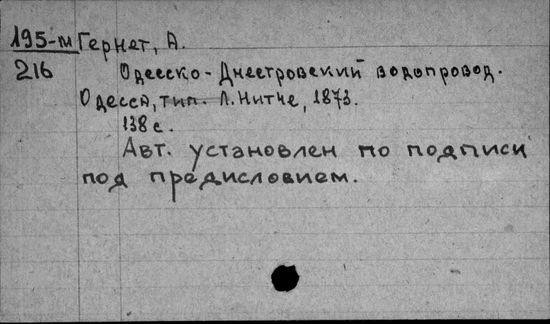 195-м Гернет, А.
216 Одесско-Днестровский водопровод.
Одесса, тип. Л. Нитче, 1873.
138 с.
Авт. установлен по подписи
под предисловием.